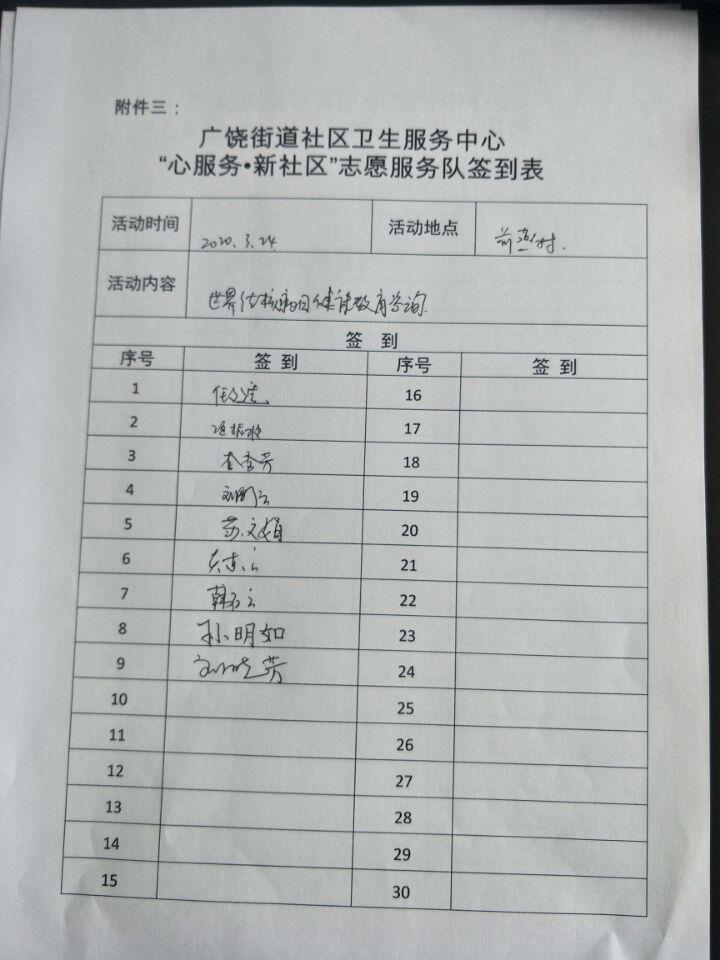 附件三：
广饶街道社区卫生服务中心
“心服务•新社区”志愿服务队签到表
活动时间 2020.3.24 活动地点 前燕村.
活动内容 世界结核病日健康教育咨询.
签 到
序号 签 到 序号 签 到
1 16
2 17
3 18
4 19
5 苏文娟 20
6 21
7 22
8 孙明如 23
9 刘晓芳 24
10 25
11 26
12 27
13 28
14 29
15 30